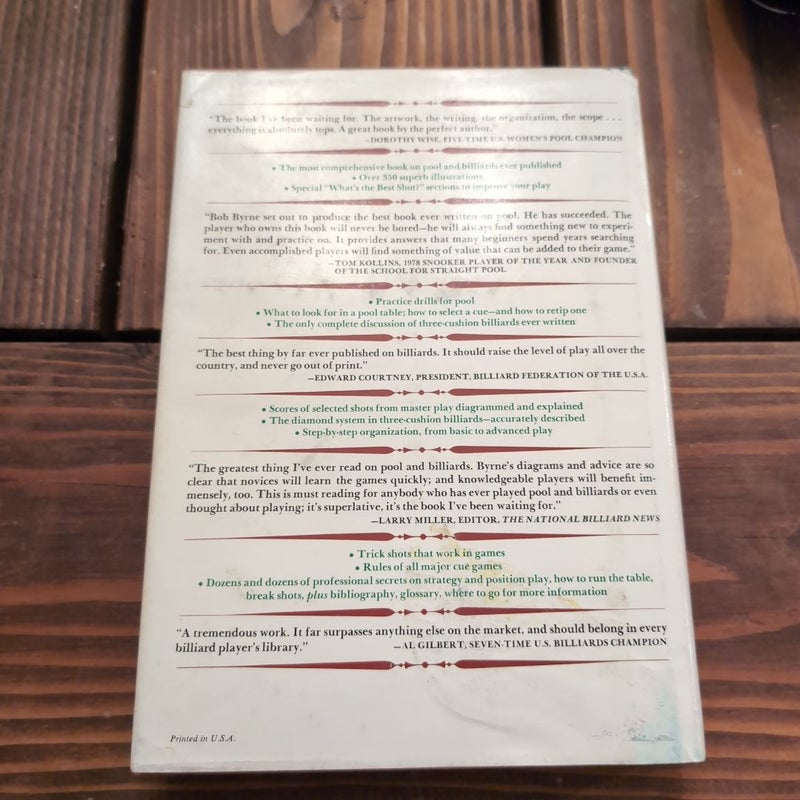 "The book I've been waiting for. The artwork, the writing, the organization, the scope . . .
everything is absolutely tops. A great book by the perfect author."
—DOROTHY WISE, FIVE-TIME U.S. WOMEN'S POOL CHAMPION
• The most comprehensive book on pool and billiards ever published
• Over 350 superb illustrations
• Special "What's the Best Shot?" sections to improve your play
"Bob Byrne set out to produce the best book ever written on pool. He has succeeded. The
player who owns this book will never be bored—he will always find something new to experi-
ment with and practice on. It provides answers that many beginners spend years searching
for. Even accomplished players will find something of value that can be added to their game."
—TOM KOLLINS, 1978 SNOOKER PLAYER OF THE YEAR AND FOUNDER
OF THE SCHOOL FOR STRAIGHT POOL
• Practice drills for pool
• What to look for in a pool table; how to select a cue—and how to retip one
• The only complete discussion of three-cushion billiards ever written
"The best thing by far ever published on billiards. It should raise the level of play all over the
country, and never go out of print."
—EDWARD COURTNEY, PRESIDENT, BILLIARD FEDERATION OF THE U.S.A.
• Scores of selected shots from master play diagrammed and explained
• The diamond system in three-cushion billiards—accurately described
• Step-by-step organization, from basic to advanced play
"The greatest thing I've ever read on pool and billiards. Byrne's diagrams and advice are so
clear that novices will learn the games quickly; and knowledgeable players will benefit im-
mensely, too. This is must reading for anybody who has ever played pool and billiards or even
thought about playing; it's superlative, it's the book I've been waiting for."
—LARRY MILLER, EDITOR, THE NATIONAL BILLIARD NEWS
• Trick shots that work in games
• Rules of all major cue games
• Dozens and dozens of professional secrets on strategy and position play, how to run the table,
break shots, plus bibliography, glossary, where to go for more information
"A tremendous work. It far surpasses anything else on the market, and should belong in every
billiard player's library." —AL GILBERT, SEVEN-TIME U.S. BILLIARDS CHAMPION
Printed in U.S.A.